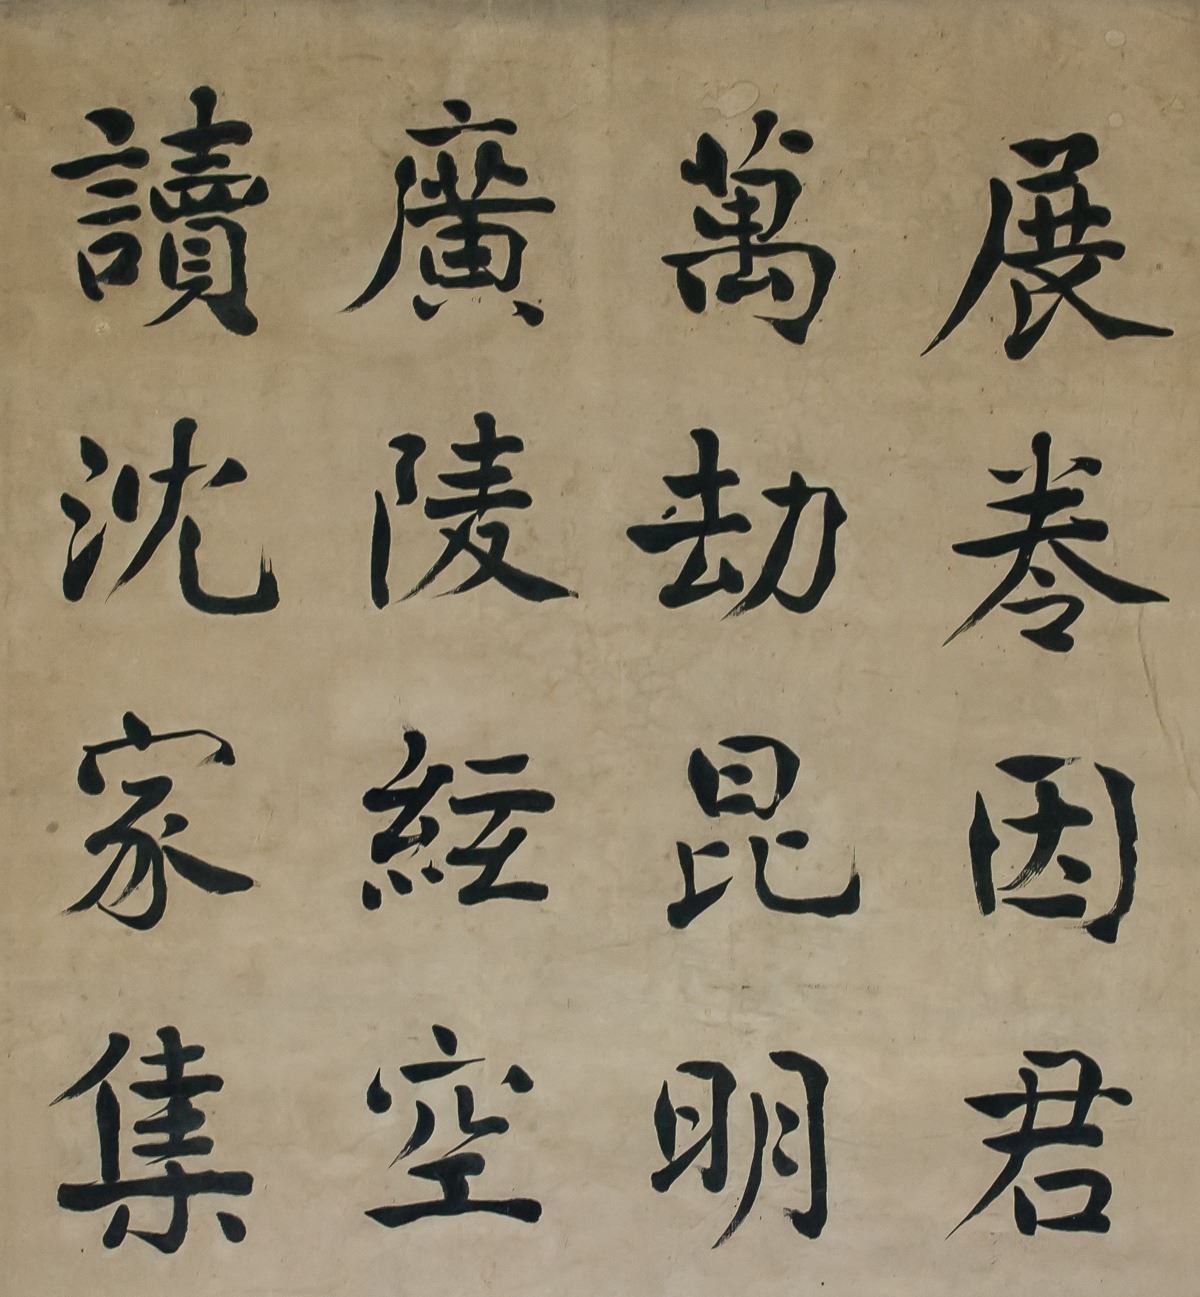 展卷因君
萬劫昆明
廣陵絃空
讀沈家集